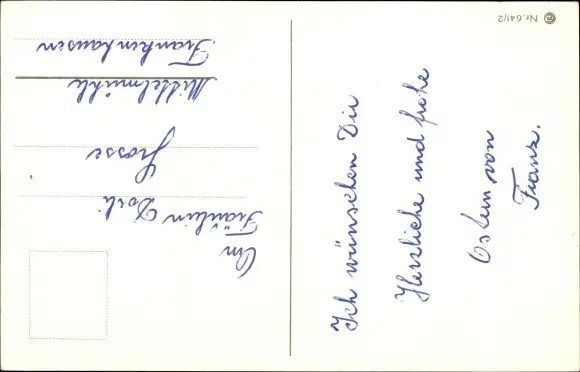 Nr. 641/2
Ich wünschen Dir
Herzliche und frohe
Ostern von
Franz.
An
Fräulein Dorli
Grosse
Mittelmühle
Frankenhausen